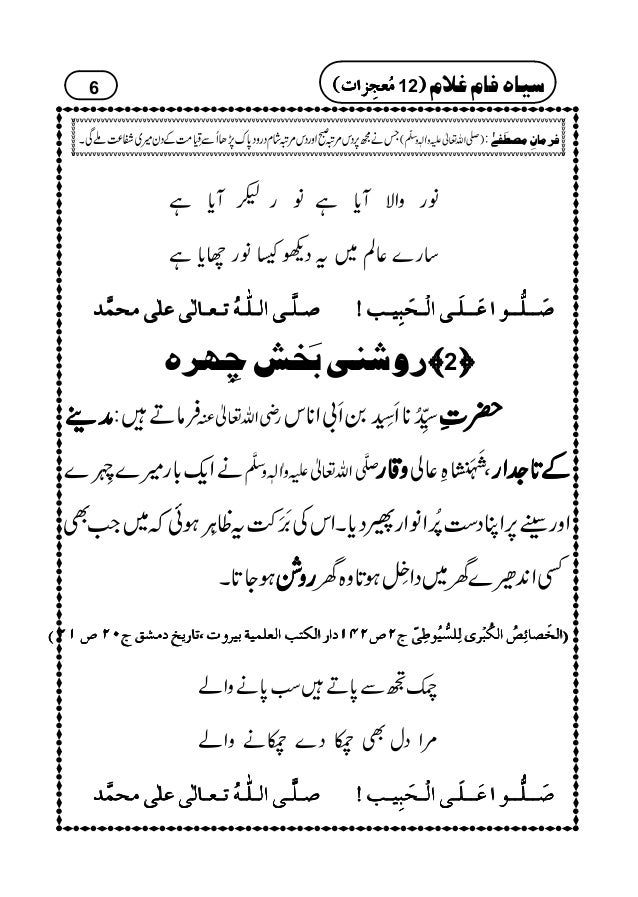 سیاہ فام غلام (12 مُعجِزات)
6
فرمانِ مصطَفٰے : (صلی اللہ تعالیٰ علیہ واٰلہٖ وسلّم) جس نے مجھ پر دس مرتبہ صبح اور دس مرتبہ شام درود پاک پڑھا اُسے قِیامت کے دن میری شفاعت ملے گی۔
نور والا آیا ہے نو ر لیکر آیا ہے
سارے عالم میں یہ دیکھو کیسا نور چھایا ہے
صَلُّوا عَلَی الْحَبِیب ! صلَّی اللّٰہُ تعالٰی علٰی محمَّد
﴿2﴾ روشنی بَخش چِہرہ
حضرتِ سیِّدُ نا اَسِید بن اَبی اناس رضی اللہ تعالیٰ عنہ فرماتے ہیں: مدینے
کے تاجدار، شَہَنشاہِ عالی وقار صلَّی اللہ تعالیٰ علیہ واٰلہٖ وسلَّم نے ایک بار میرے چِہرے
اور سینے پر اپنا دست پُر انوار پھیر دیا۔ اس کی بَرَکت یہ ظاہِر ہوئی کہ میں جب بھی
کسی اندھیرے گھر میں داخِل ہوتا وہ گھر روشن ہو جاتا۔
(الخَصائِصُ الکُبْرٰی لِلسُّیُوطِیّ ج۲ ص۱۴۲ دار الکتب العلمیة بیروت ،تاریخ دمشق ج۲۰ ص ۲۱)
چمک تجھ سے پاتے ہیں سب پانے والے
مرا دل بھی چمکا دے چمکانے والے
صَلُّوا عَلَی الْحَبِیب ! صلَّی اللّٰہُ تعالٰی علٰی محمَّد